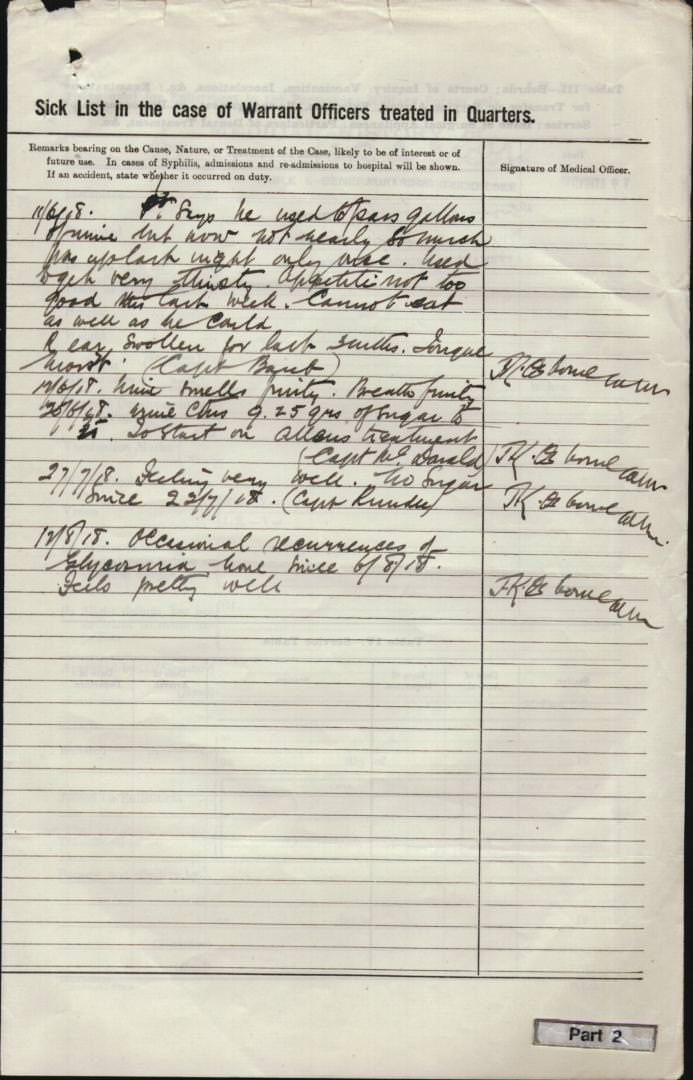 Sick List in the case of Warrant Officers treated in Quarters.
Remarks bearing on the Cause, Nature, or Treatment of the Case, likely to be of interest or of
future use. In cases of Syphilis, admissions and re-admissions to hospital will be shown.
If an accident, state whether it occurred on duty.
Signature of Medical Officer.
Pt. Says he used to pass gallons
of urine but now not nearly so much
has up last night only once. Used
to get very thirsty. Appetite not too
good this last week. Cannot eat
as well as he could
R ear swollen for last Tongue
moist. (Capt
Urine smells fruity. Breath fruity
urine 25 grs. of Sugar to
To Start on Allens treatment
(Capt
27/7/18. Feeling very well. No Sugar
Since 22/7/18. (Capt
12/8/18. Occasional recurrences of
Glycosuria none since 6/8/18.
Feels pretty well
Part 2